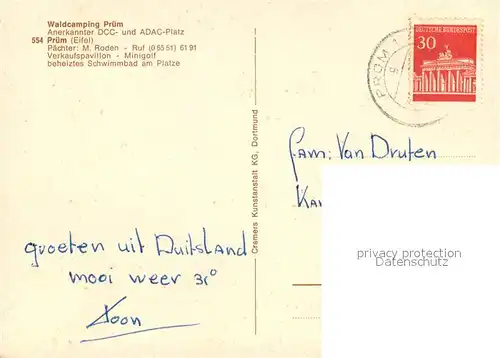 Waldcamping Prüm
Anerkannter DCC- und ADAC-Platz
554 Prüm (Eifel)
Pächter: M. Roden - Ruf (0 65 51) 61 91
Verkaufspavillon - Minigolf
beheiztes Schwimmbad am Platze
PRÜM 1
DEUTSCHE BUNDESPOST
30
Cramers Kunstanstalt KG, Dortmund
fam: Van Druten
groeten uit Duitsland
mooi weer 31°
Toon
privacy protection
Datenschutz